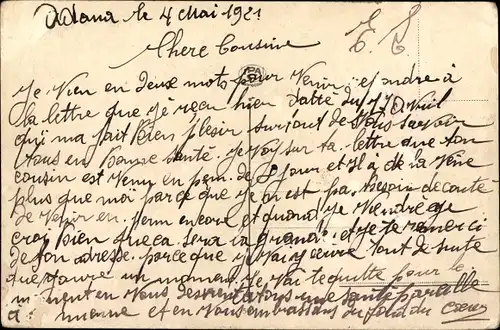 Adana le 4 Mai 1921
Chere Cousine
Je Vien en deux mots pour Venir à
la lettre que je reçu hier datté du Avril
qui ma fait bien plesir surtout de Vous savoir
tous en bonne Santé. je Voi sur ta lettre que ton
cousin est Venu en perm de jour et il a de la Vene
plus que moi parce que je en est pa besoin de conté
de Venir en perm encore et quand je Viendré je
croi bien que ca sera la grande et je te remerci
de son adresse parce que je Vai écrire tout de suite
que un moman. Je Vai te quitte pour le
moment en Vous tous une Santé pareille
a mienne et en Vous embrassans du fond du Cœur